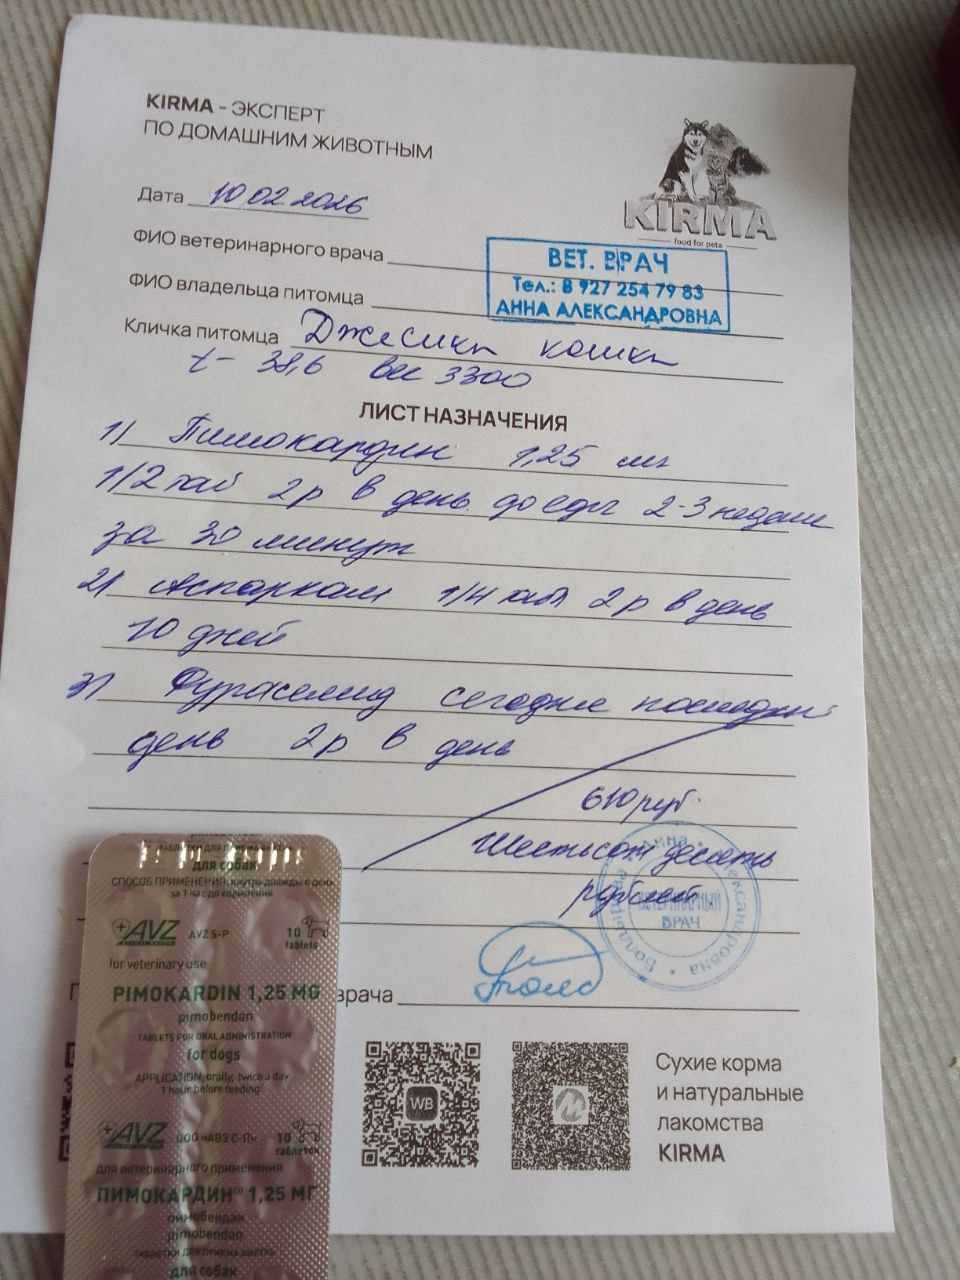 KIRMA - ЭКСПЕРТ
ПО ДОМАШНИМ ЖИВОТНЫМ
KIRMA
food for pets
Дата 10 02 2026
ФИО ветеринарного врача
ВЕТ. ВРАЧ
Тел.: 8 927 254 79 83
АННА АЛЕКСАНДРОВНА
ФИО владельца питомца
Кличка питомца Джесика кошка
t - 38,6 вес 3300
ЛИСТ НАЗНАЧЕНИЯ
1) Пимокардин 1,25 мг
1/2 таб 2р в день до еды 2-3 недели
за 30 минут
2) Аспаркам 1/4 таб 2р в день
10 дней
3) Фуросемид сегодня последний
день 2р в день
610 руб.
Шестьсот десять
рублей
ВЕТЕРИНАРНЫЙ
ВРАЧ
Александровна
врача
Сухие корма
и натуральные
лакомства
KIRMA
WB
для собак
СПОСОБ ПРИМЕНЕНИЯ: внутрь дважды в день
за 1 час до кормления
AVZ
AVZ S-P
10
tablets
for veterinary use
PIMOKARDIN 1,25 MG
pimobendan
TABLETS FOR ORAL ADMINISTRATION
for dogs
APPLICATION: orally, twice a day
1 hour before feeding
AVZ
ООО «АВЗ С-П»
10
таблеток
для ветеринарного применения
ПИМОКАРДИН® 1,25 МГ
пимобендан
pimobendan
для собак